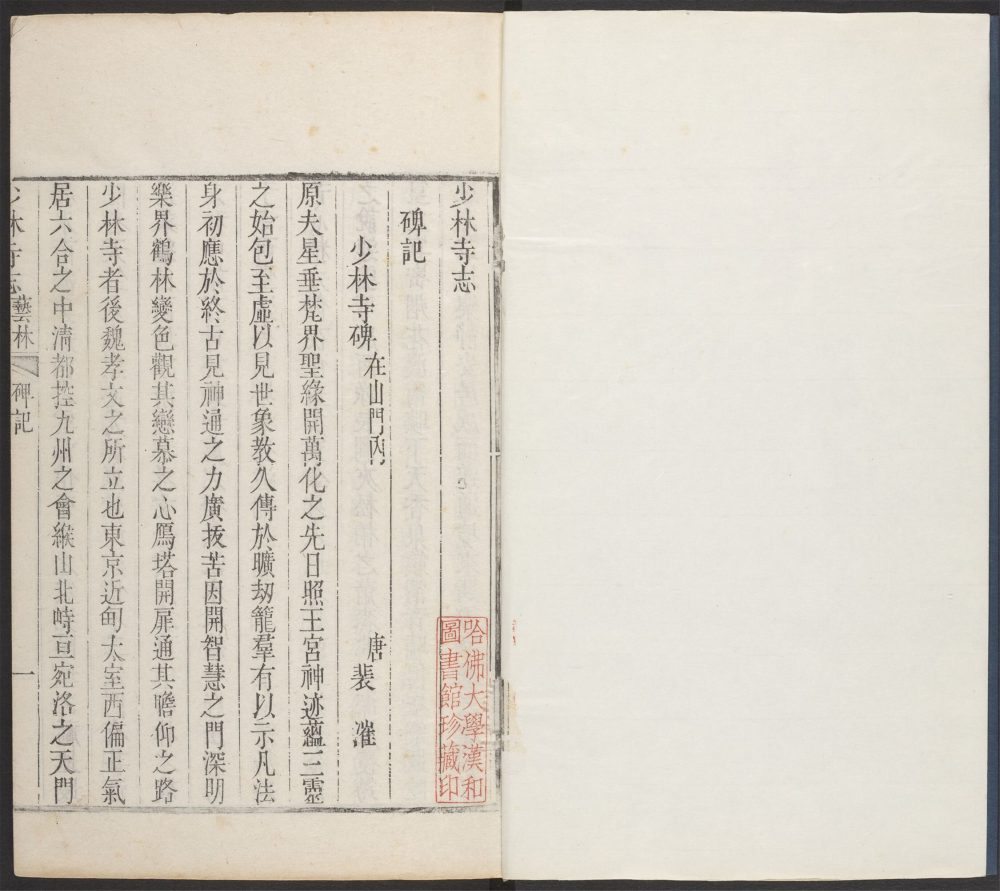 少林寺志
碑記
少林寺碑 在山門內 唐 裴漼
原夫星垂梵界聖緣開萬化之先日照王宮神迹蘊三靈
之始包至虛以見世象教久傳於曠劫籠羣有以示凡法
身初應於終古見神通之力廣拔苦因開智慧之門深明
樂界鶴林變色觀其戀慕之心鴈塔開扉通其瞻仰之路
少林寺者後魏孝文之所立也東京近甸太室西偏正氣
居六合之中清都控九州之會緱山北峙亘宛洛之天門
少林寺志 藝林 碑記 一
哈佛大學漢和
圖書館珍藏印